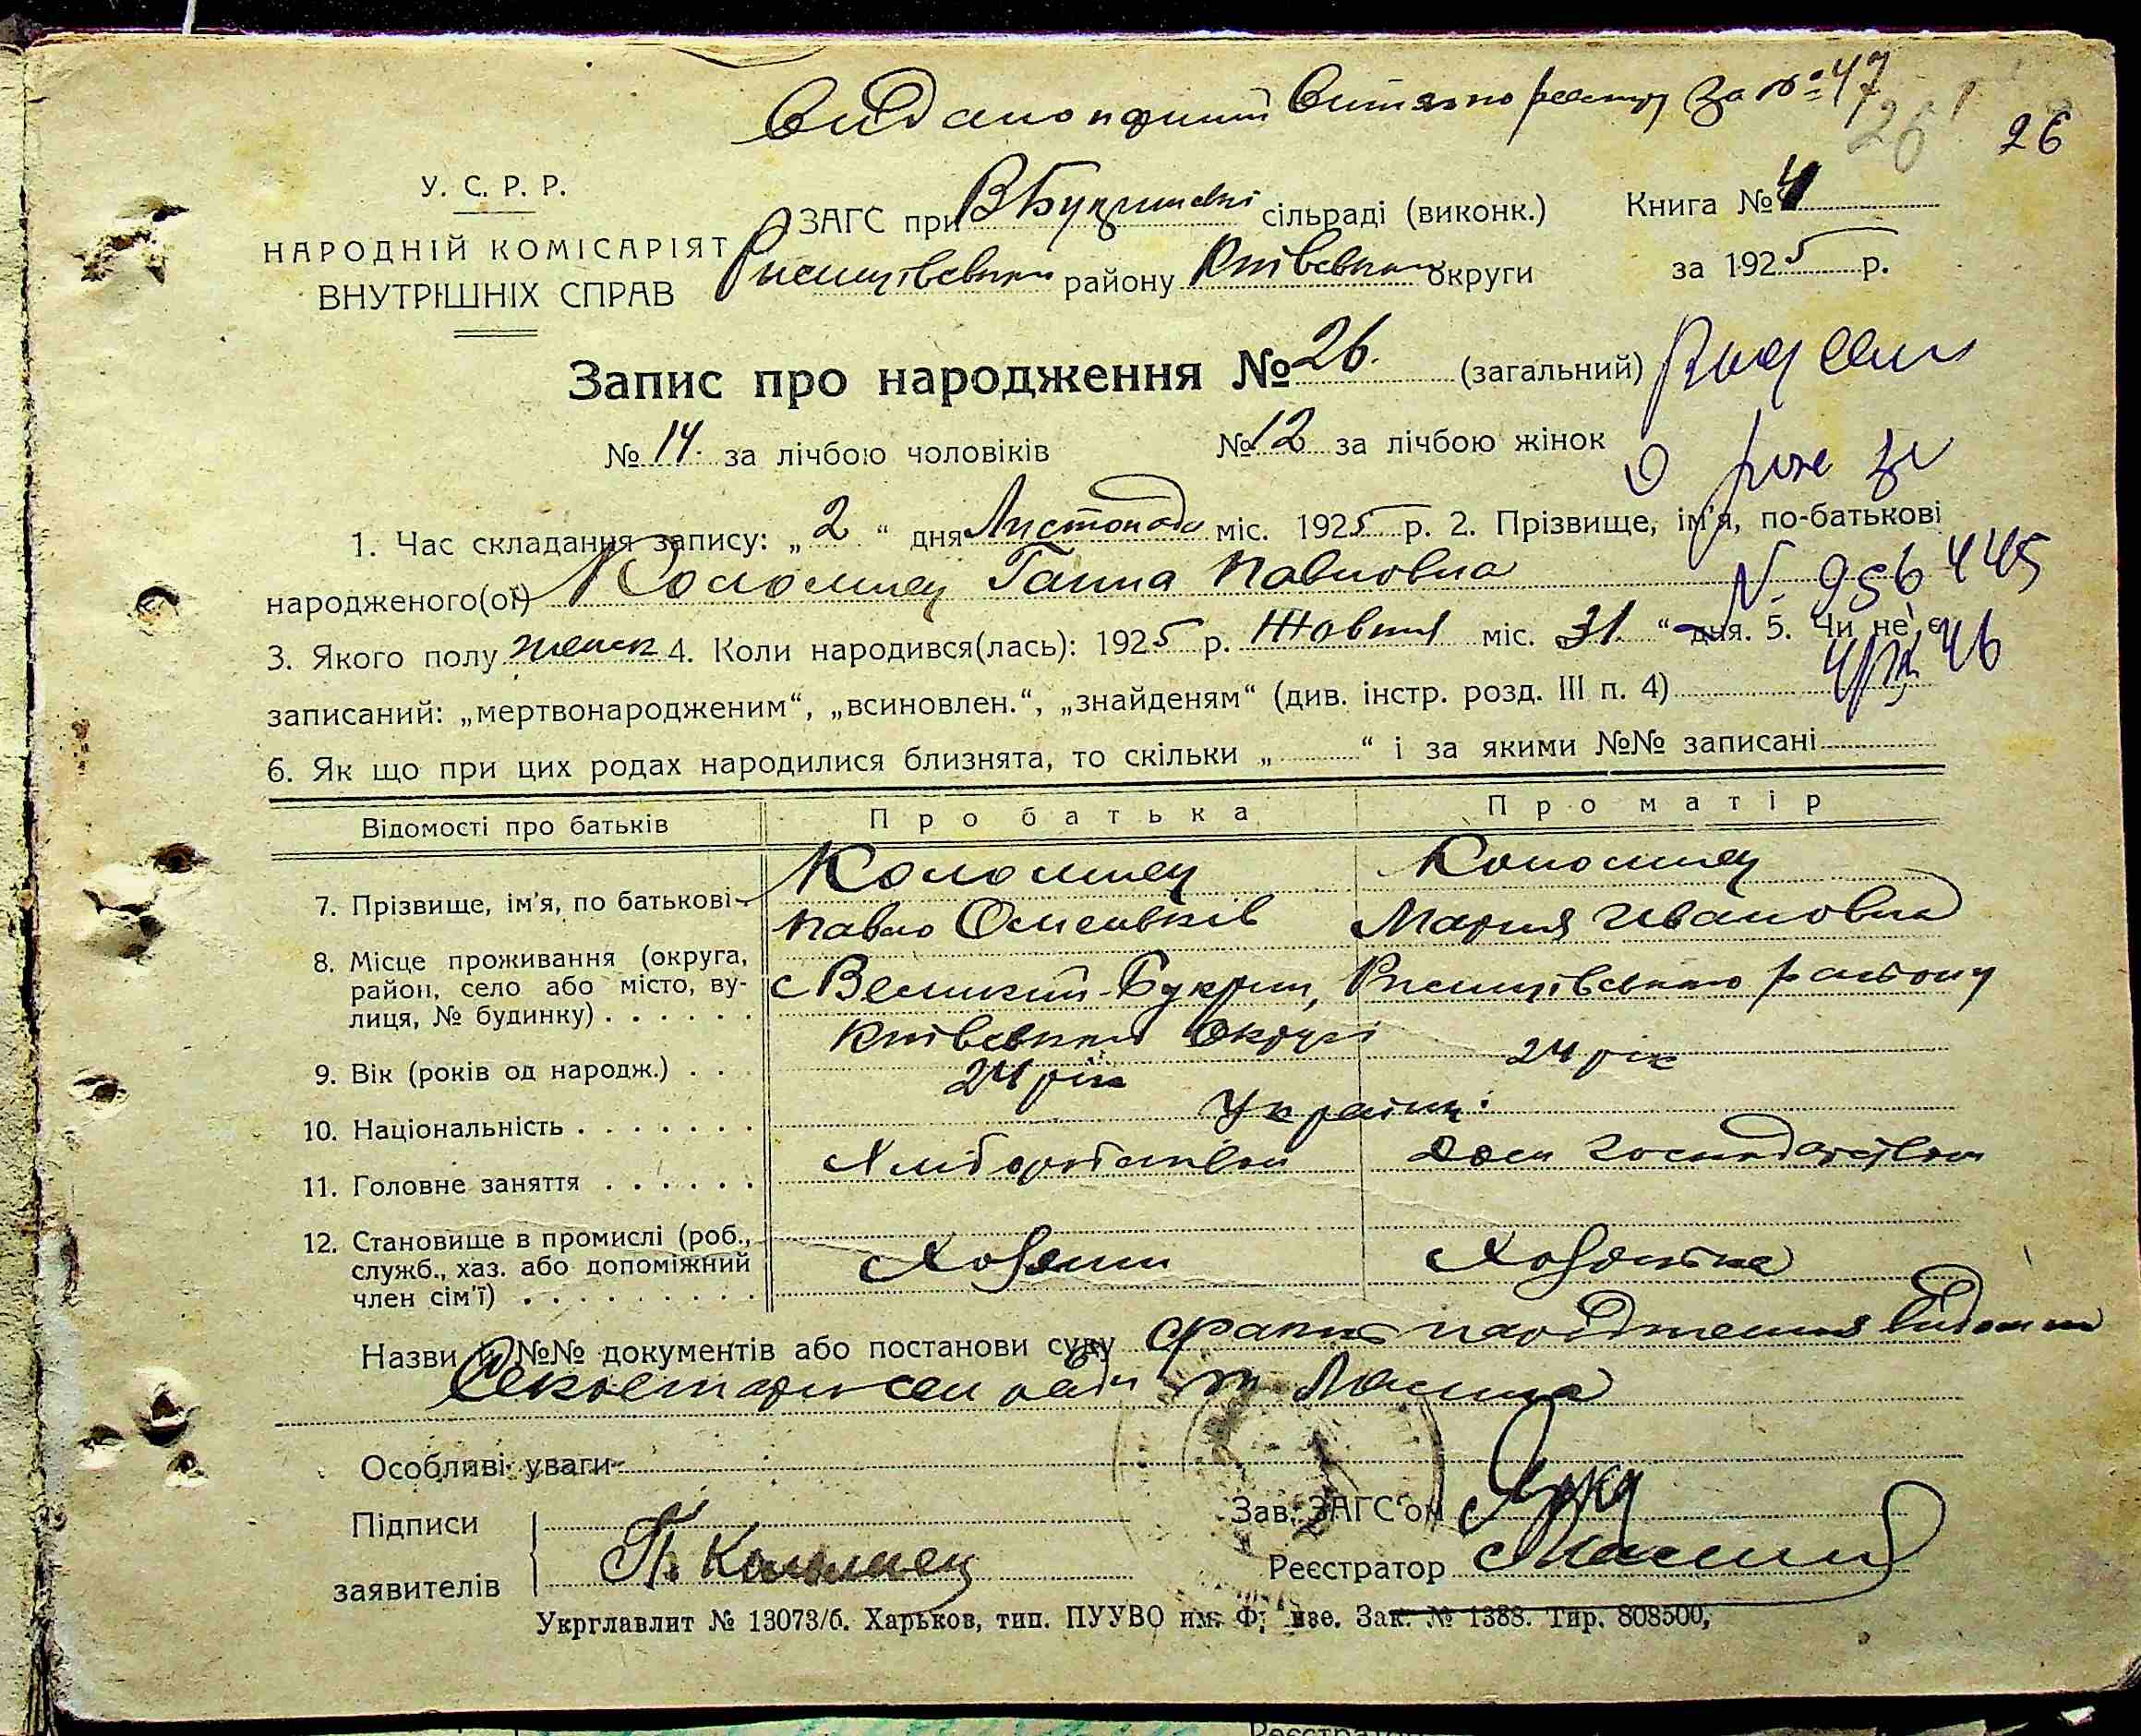 Видано повний Витяг по реестру за № 47
26 26
У. С. Р. Р.
НАРОДНІЙ КОМІСАРІЯТ
ВНУТРІШНІХ СПРАВ
ЗАГС при В Букринській сільраді (виконк.) Книга № 4
Ржищівськ району Київськ округи за 1925 р.
Запис про народження № 26. (загальний)
№ 14. за лічбою чоловіків № 12 за лічбою жінок
о рож
1. Час складання запису: „ 2 “ дня Листопада міс. 1925 р. 2. Прізвище, ім'я, по-батькові
народженого(ої) Коломиец Ганна Павловна
N. 956445
3. Якого полу женск 4. Коли народився(лась): 1925 р. Жовтня міс. 31. “ дня. 5. Чи не є
46
записаний: „мертвонародженим“, „всиновлен.“, „знайденям“ (див. інстр. розд. III п. 4)
6. Як що при цих родах народилися близнята, то скільки „ “ і за якими №№ записані
Відомості про батьків Про батька Про матір
7. Прізвище, ім'я, по батькові Коломиец Коломиец
Павло Мария Ивановна
8. Місце проживання (округа, район, село або місто, вулиця, № будинку) с Великий-Букрин, Ржищівського району
Київської округи
9. Вік (років од народж.) 24 рік 24 рік
10. Національність Україн.
11. Головне заняття Хліборобством Дом господарством
12. Становище в промислі (роб., служб., хаз. або допоміжний член сім'ї) Хозяин Хозяйка
Назви й №№ документів або постанови суду народження
Секретарем
Особливі уваги
Підписи
заявителів П. Коломиец
Зав. ЗАГС'ом
Реєстратор
Укрглавлит № 13073/б. Харьков, тип. ПУУВО им. Фрунзе. Зак. № 1388. Тир. 808500,